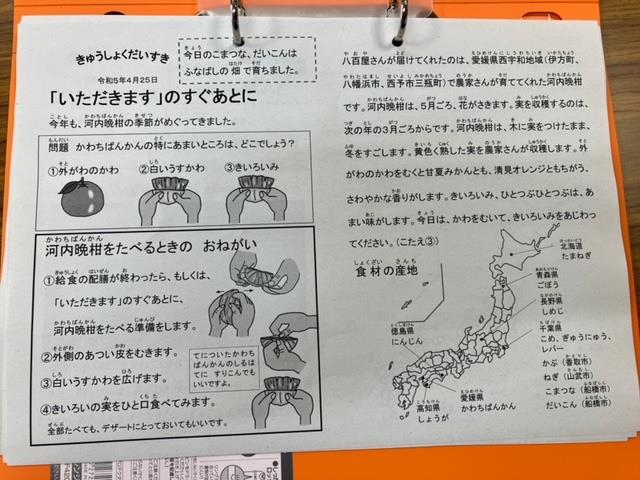 きゅうしょくだいすき
令和5年4月25日
今日のこまつな、だいこんは
ふなばしの畑で育ちました。
「いただきます」のすぐあとに
今年も、河内晩柑の季節がめぐってきました。
問題 かわちばんかんの特にあまいところは、どこでしょう?
①外がわのかわ ②白いうすかわ ③きいろいみ
河内晩柑をたべるときの おねがい
①給食の配膳が終わったら、もしくは、
「いただきます」のすぐあとに、
河内晩柑をたべる準備をします。
②外側のあつい皮をむきます。
③白いうすかわを広げます。
④きいろいの実をひと口食べてみます。
全部たべても、デザートにとっておいてもいいです。
てについたかわち
ばんかんのしるは
てに すりこんでも
いいですよ。
八百屋さんが届けてくれたのは、愛媛県西宇和地域(伊方町、
八幡浜市、西予市三瓶町)での農家さんが育ててくれた河内晩柑
です。河内晩柑は、5月ごろ、花がさきます。実を収穫するのは、
次の年の3月ごろからです。河内晩柑は、木に実をつけたまま、
冬をすごします。黄色く熟した実を農家さんが収穫します。外
がわのかわをむくと甘夏みかんとも、清見オレンジともちがう、
さわやかな香りがします。きいろいみ、ひとつぶひとつぶは、あ
まい味がします。今日は、かわをむいて、きいろいみをあじわっ
てください。(こたえ③)
食材の産地
北海道
たまねぎ
青森県
ごぼう
長野県
しめじ
千葉県
こめ、ぎゅうにゅう、
レバー
かぶ(香取市)
ねぎ(山武市)
こまつな(船橋市)
だいこん(船橋市)
徳島県
にんじん
高知県
しょうが
愛媛県
かわちばんかん